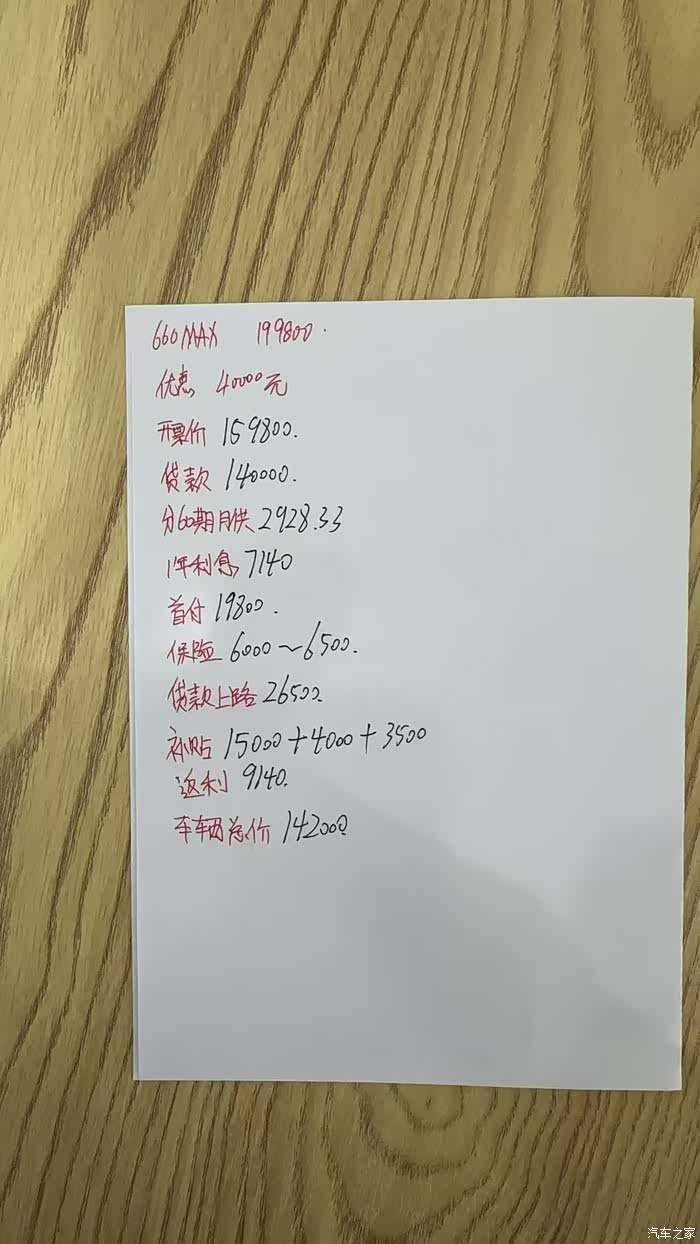 660MAX 199800.
优惠 40000元
开票价 159800.
贷款 140000.
分60期月供 2928.33
1年利息 7140
首付 19800.
保险 6000~6500.
贷款上路 26500.
补贴 15000+4000+3500
返利 9140.
车辆总价 142000
汽车之家